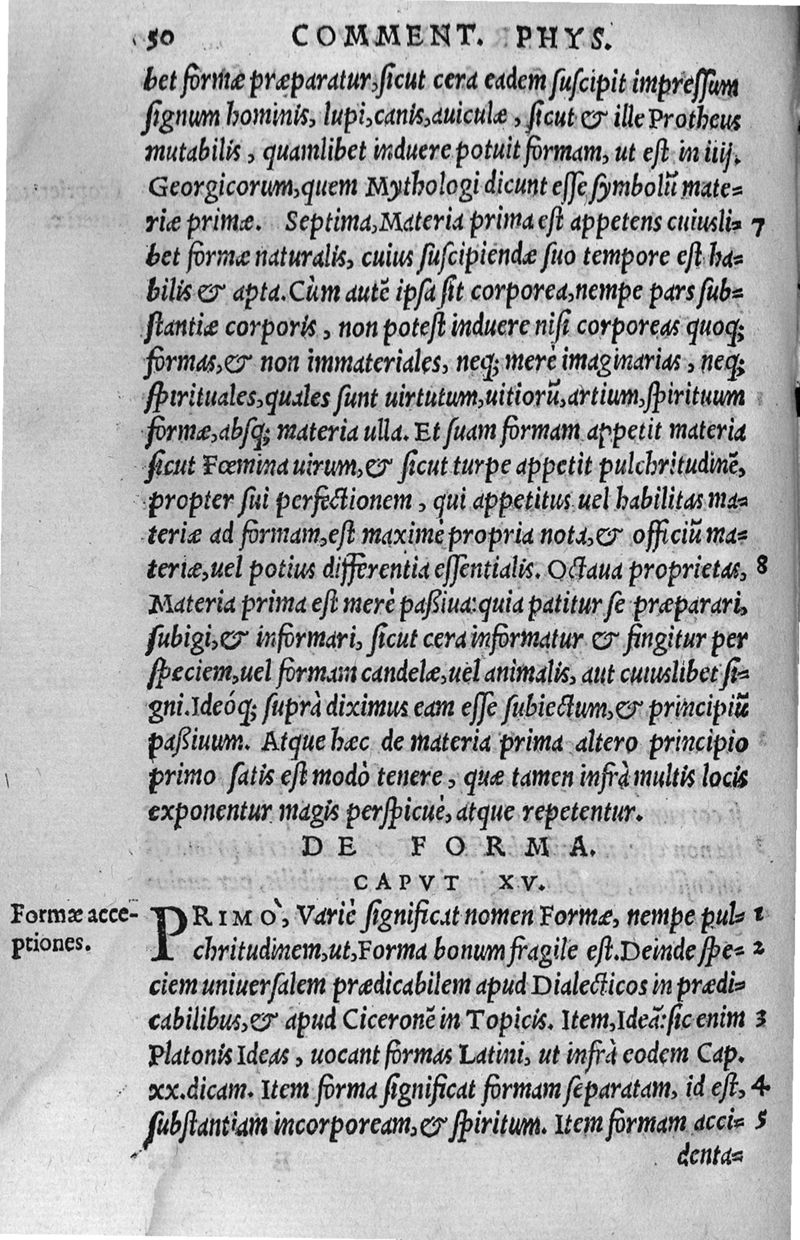 50 COMMENT. PHYS.
bet formæ præparatur, ſicut cera eadem ſuſcipit impreſſum
ſignum hominis, lupi, canis, auiculæ, ſicut & ille Protheus
mutabilis, quamlibet induere potuit formam, ut eſt in iiij.
Georgicorum, quem Mythologi dicunt eſſe ſymbolũ mate-
riæ primæ. Septima, Materia prima eſt appetens cuiusli- 7
bet formæ naturalis, cuius ſuſcipiendæ ſuo tempore eſt ha-
bilis & apta. Cùm autẽ ipſa ſit corporea, nempe pars ſub-
ſtantiæ corporis, non poteſt induere niſi corporeas quoq;
formas, & non immateriales, neq; merè imaginarias, neq;
ſpirituales, quales ſunt uirtutum, uitiorũ, artium, ſpirituum
formæ, abſq; materia ulla. Et ſuam formam appetit materia
ſicut Fœmina uirum, & ſicut turpe appetit pulchritudinẽ,
propter ſui perfectionem, qui appetitus uel habilitas ma-
teriæ ad formam, eſt maximè propria nota, & officiũ ma-
teriæ, uel potius differentia eſſentialis. Octaua proprietas, 8
Materia prima eſt merè paßiua: quia patitur ſe præparari,
ſubigi, & informari, ſicut cera informatur & fingitur per
ſpeciem, uel formam candelæ, uel animalis, aut cuiuslibet ſi-
gni. Ideóq; ſuprà diximus eam eſſe ſubiectum, & principiũ
paßiuum. Atque hæc de materia prima altero principio
primo ſatis eſt modò tenere, quæ tamen infrà multis locis
exponentur magis perſpicuè, atque repetentur.
DE FORMA.
CAPVT XV.
Formæ acce-
ptiones.
PRIMÒ, Variè ſignificat nomen Formæ, nempe pul- 1
chritudinem, ut, Forma bonum fragile eſt. Deinde ſpe- 2
ciem uniuerſalem prædicabilem apud Dialecticos in prædi-
cabilibus, & apud Ciceronẽ in Topicis. Item, Ideã: ſic enim 3
Platonis Ideas, uocant formas Latini, ut infrà eodem Cap.
xx. dicam. Item forma ſignificat formam ſeparatam, id eſt, 4
ſubſtantiam incorpoream, & ſpiritum. Item formam acci- 5
denta-